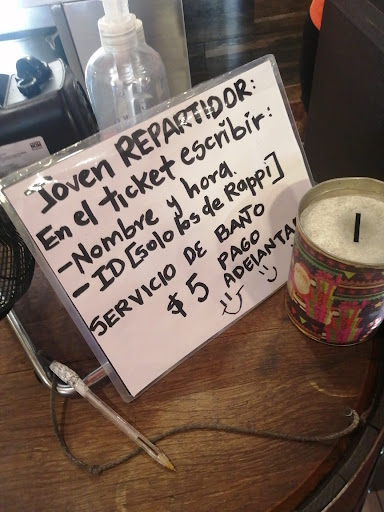 Joven REPARTIDOR:
En el ticket escribir:
-Nombre y hora.
-ID [solo los de Rappi]
SERVICIO DE BAÑO
$5 PAGO
ADELANTA